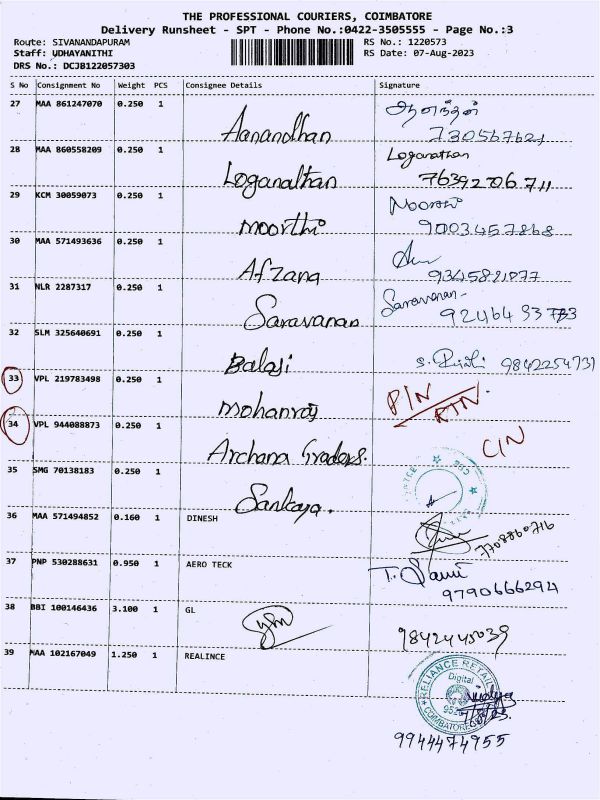 THE PROFESSIONAL COURIERS, COIMBATORE
Delivery Runsheet - SPT - Phone No.:0422-3505555 - Page No.:3
Route: SIVANANDAPURAM RS No.: 1220573
Staff: UDHAYANITHI RS Date: 07-Aug-2023
DRS No.: DCJB122057303
S No Consignment No Weight PCS Consignee Details Signature
27 MAA 861247070 0.250 1 Aanandhan ஆனந்தன்
730567621
28 MAA 860558209 0.250 1 Loganathan Loganathan
7639270671
29 KCM 30059073 0.250 1 Moorthi Moorthi
9003457868
30 MAA 571493636 0.250 1 Afzana
9345821077
31 NLR 2287317 0.250 1 Saravanan Saravanan
32 SLM 325640691 0.250 1 Balaji 9842254731
33 VPL 219783498 0.250 1 Mohanraj P/N RTN.
34 VPL 944088873 0.250 1 Archana Traders. C/N
35 SMG 70138183 0.250 1 Sankaya.
36 MAA 571494852 0.160 1 DINESH 7708860716
37 PNP 530288631 0.950 1 AERO TECK
9790666294
38 BBI 100146436 3.100 1 GL 9842445039
39 MAA 102167049 1.250 1 REALINCE
RELIANCE RETAIL
Digital
COIMBATORE
9944474955